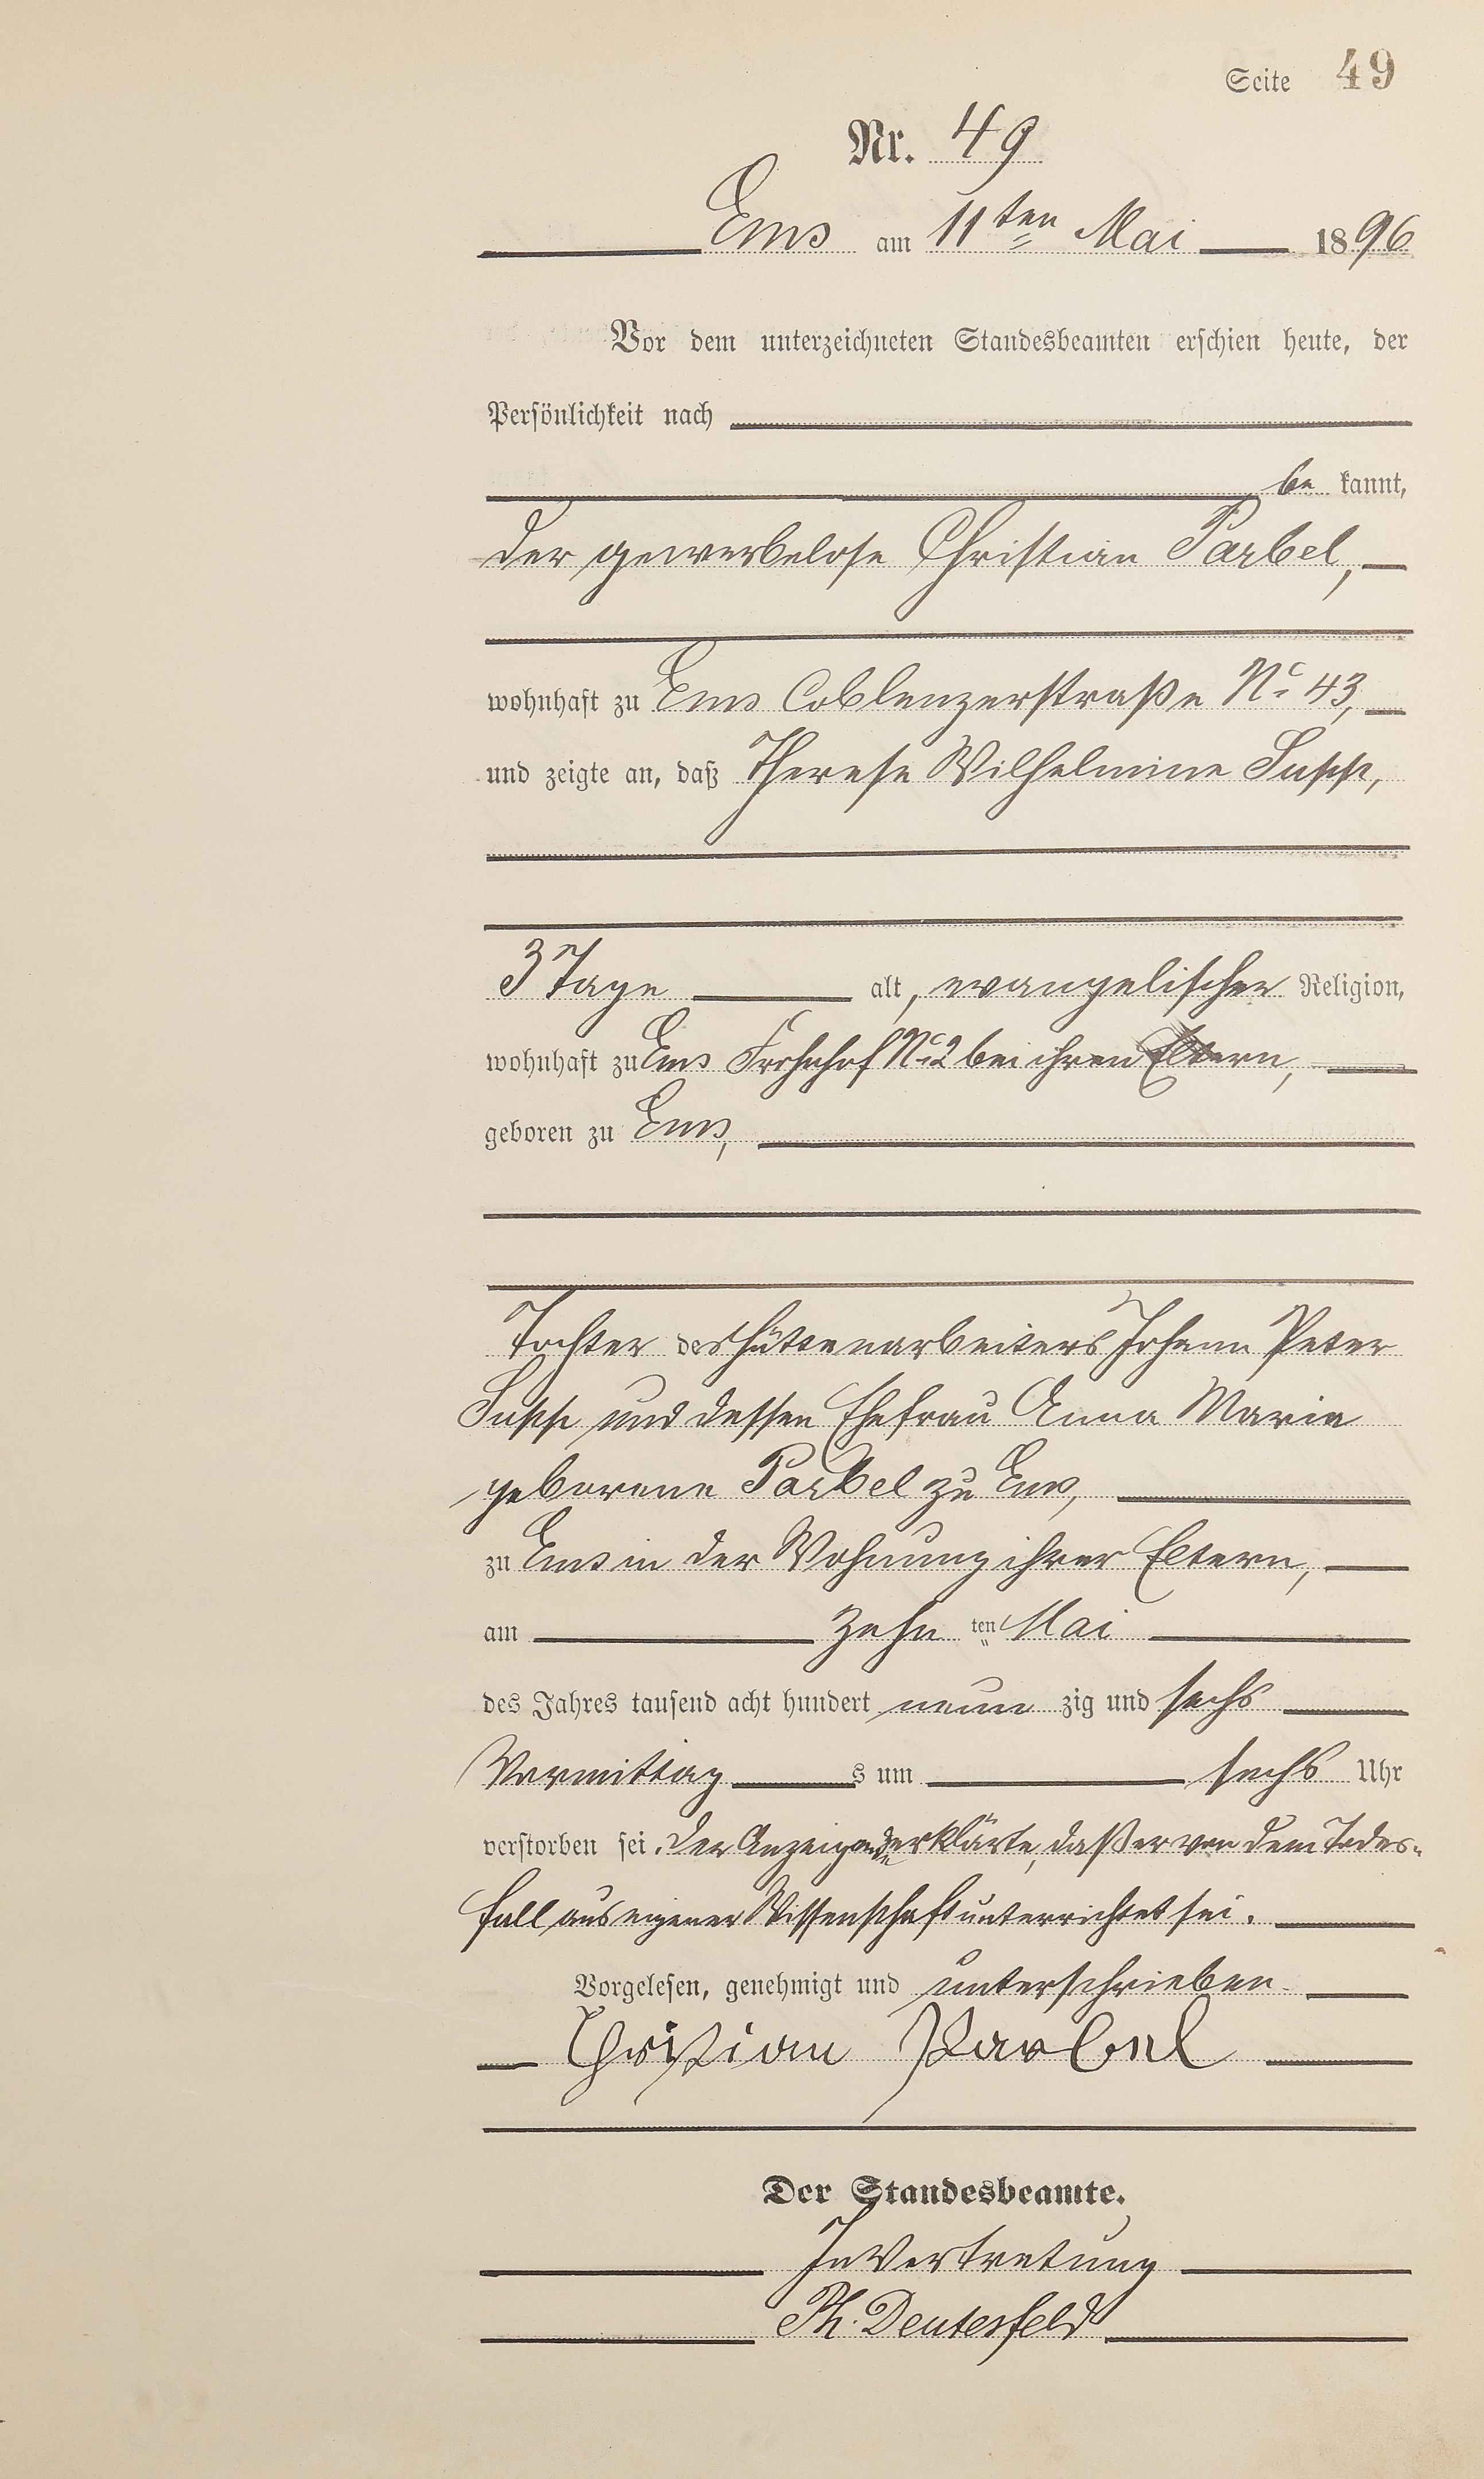 Seite 49
Nr. 49
Ems am 11ten Mai 1896
Vor dem unterzeichneten Standesbeamten erschien heute, der
Persönlichkeit nach
be kannt,
der gewerbelose Christian Parbel,
wohnhaft zu Ems Coblenzerstraße No 43,
und zeigte an, daß Therese Wilhelmine Supp,
3 Tage alt, evangelischer Religion,
wohnhaft zu Ems Frohnhof No 2 bei ihren Eltern,
geboren zu Ems,
Tochter des Hüttenarbeiters Johann Peter
Supp und dessen Ehefrau Anna Maria
geborene Parbel zu Ems,
zu Ems in der Wohnung ihrer Eltern,
am zehn ten Mai
des Jahres tausend acht hundert neun zig und sechs
Vormittag s um sechs Uhr
verstorben sei. Der Anzeigende erklärte, daß er von dem Todes-
fall aus eigener Wissenschaft unterrichtet sei.
Vorgelesen, genehmigt und unterschrieben
Christian Parbel
Der Standesbeamte.
In Vertretung
Ph. Deutesfeld